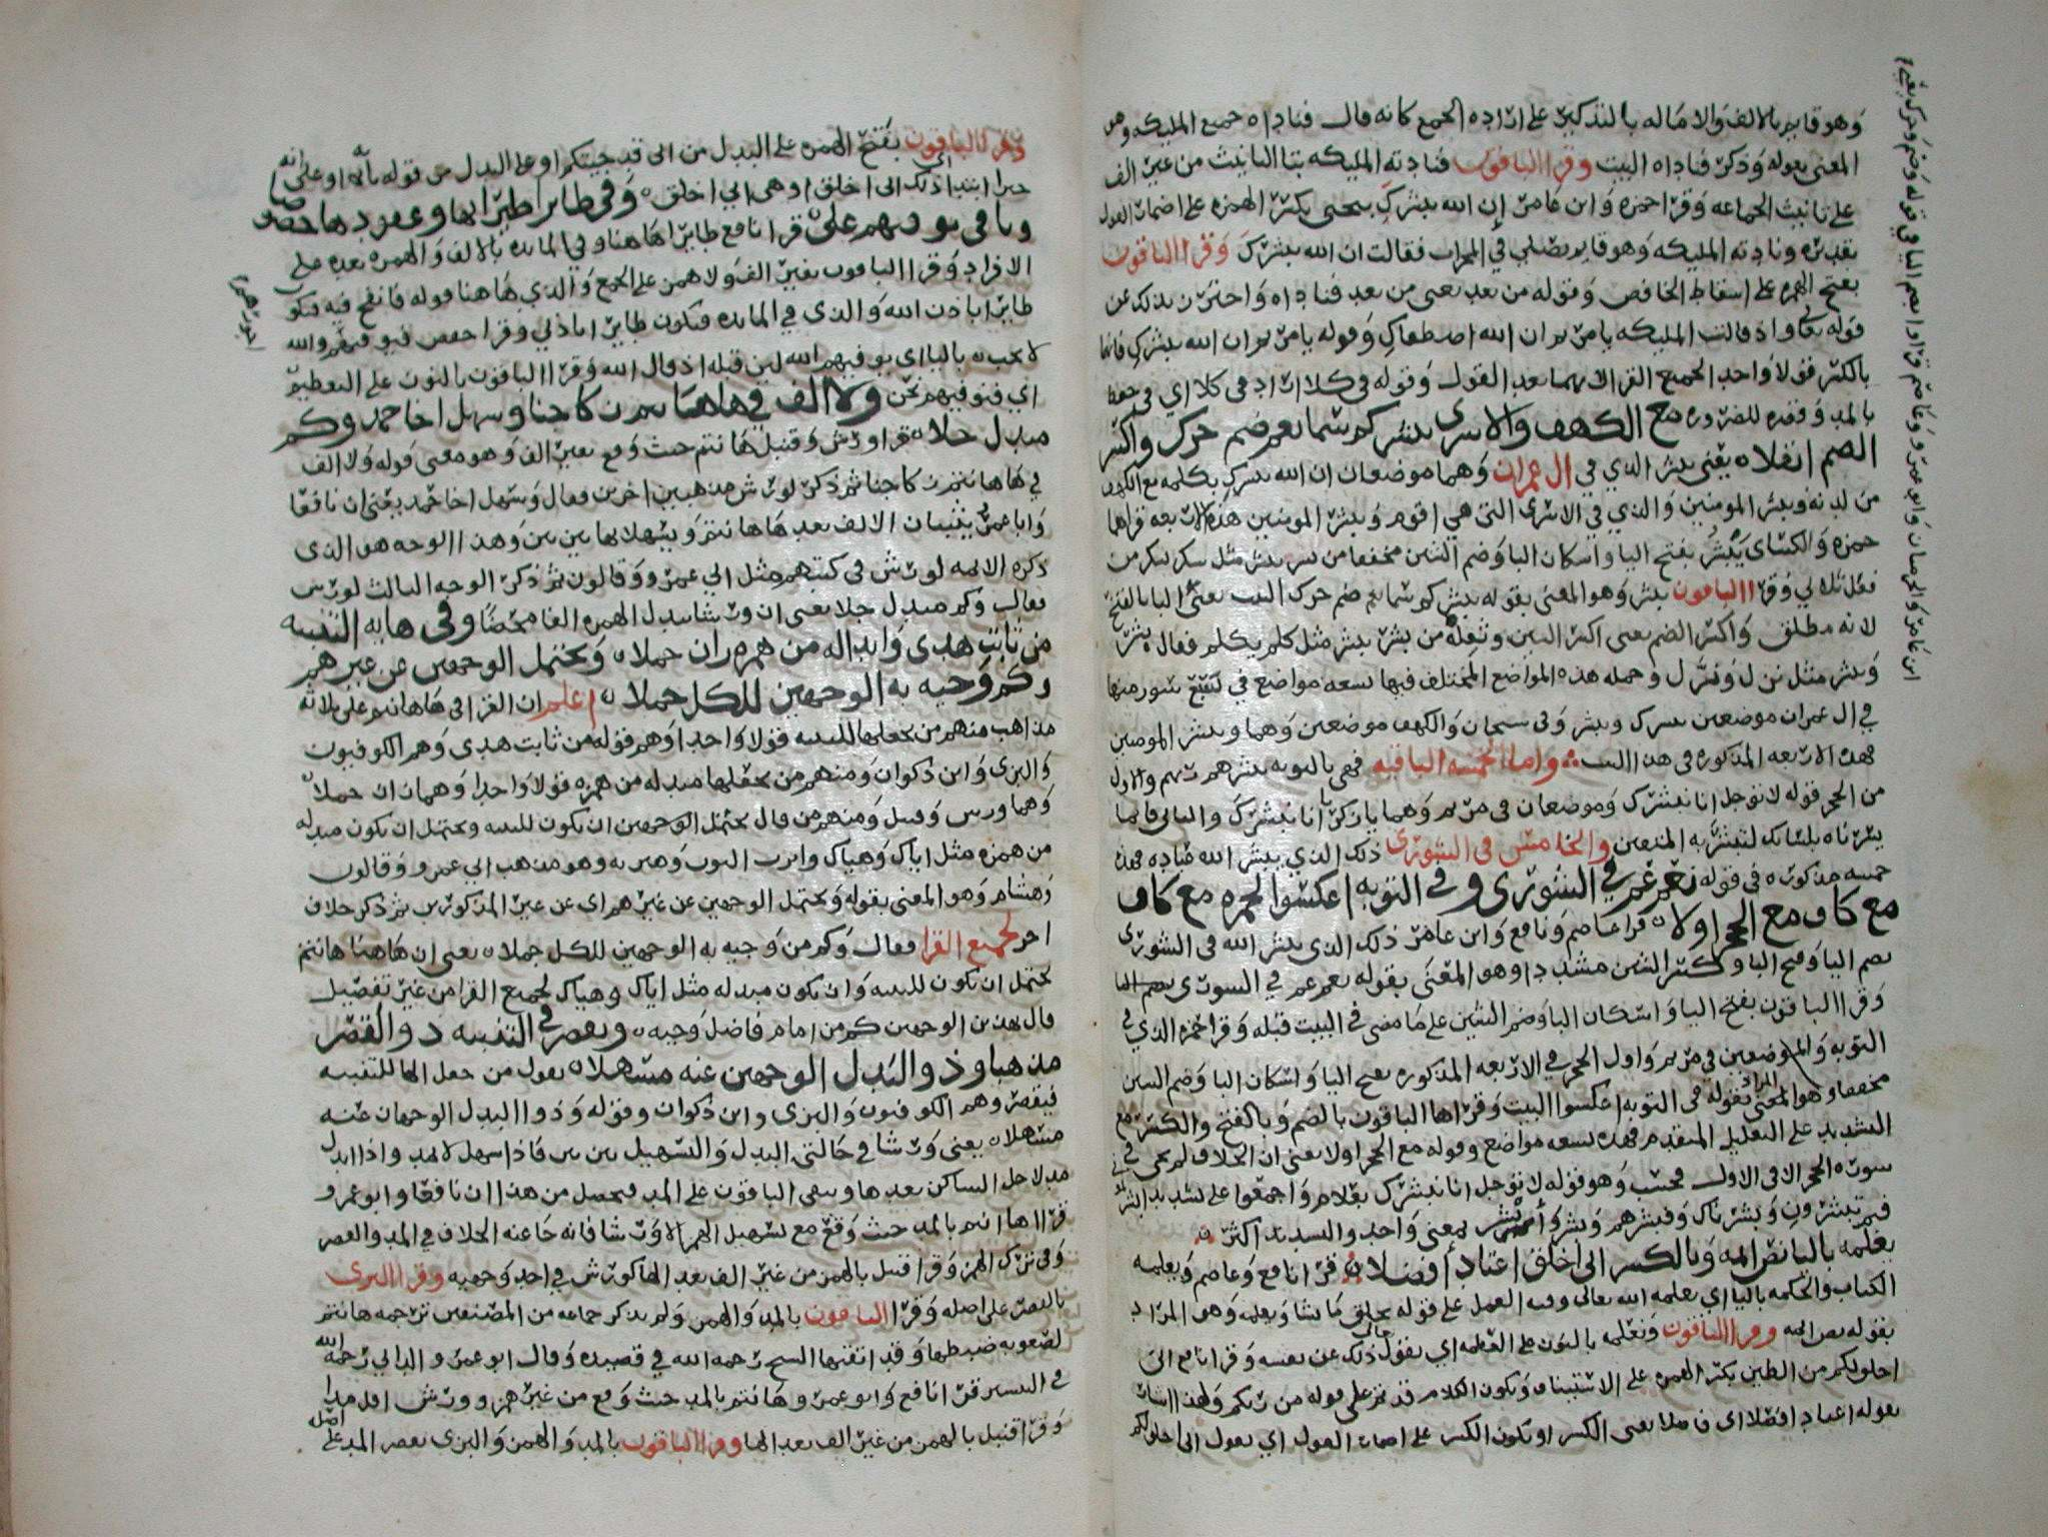 وهو قايم بالالف والاماله بالتذكير على ارادة الجمع كانه قال فناداه جميع المليكه وهو
المعنى بقوله وذكر فناداه البيت وقرا الباقون فنادته المليكه بتا التانيث من غير الف
على تانيث الجماعه وقرا حمزه وابن عامر إن الله يبشرك بيحيى بكسر الهمزه على اضمار القول
تقديره ونادته المليكه وهو قايم يصلي في المحراب فقالت ان الله يبشرك وقرا الباقون
بفتح الهمزه على اسقاط الخافض وقوله من بعد يعنى من بعد فناداه واحترز بذلك عن
قوله تعالى واذ قالت المليكه يامريم ان الله اصطفاك وقوله يامريم ان الله يبشرك فانهما
بالكسر قولا واحدا لجميع القرا لانهما بعد القول وقوله في كلا
بالمد وقصره للضروره مع الكهف والاسرى يبشر كم سما نعم ضم حرك واكسر
الضم اثقلا يعنى يبشر الذي في ال عمران وهما موضعان ان الله يبشرك بكلمه مع الكهف
من لدنه ويبشر المومنين والذي في الاسرى التى هي اقوم ويبشر المومنين هذه الاربعه قراها
حمزه والكساى يبشر بفتح اليا واسكان البا وضم الشين مخففا من بشر يبشر مثل سكر يسكر من
فعل ثلاثي وقرا الباقون يبشر وهو المعنى بقوله يبشر كم سما نعم ضم حرك البيت يعنى البا بالفتح
لانه مطلق واكسر الضم يعنى اكسر الشين وثقله من بشر يبشر مثل كلم يكلم فقال بشر
ويبشر مثل نزل وينزل وجمله هذه المواضع المختلف فيها تسعه مواضع في سور منها
في ال عمران موضعين يبشرك ويبشر وفى سبحان والكهف موضعين وهما ويبشر المومنين
فهذه الاربعه المذكوره في هذا البيت واما الخمسه الباقيه فهي بالتوبه يبشرهم ربهم والاول
من الحجر قوله لا توجل انا نبشرك وموضعان في مريم وهما يازكريا انا نبشرك والثانى فانما
يسرناه بلسانك لتبشر به المتقين والخامس في الشورى ذلك الذي يبشر الله عباده فهذه
خمسه مذكوره في قوله نعم عم في الشورى وفي التوبه اعكسوا لحمزه مع كاف
مع كاف مع الحجر اولا قرا عاصم ونافع وابن عامر ذلك الذى يبشر الله في الشورى
بضم اليا وفتح البا وكسر الشين مشددا وهو المعنى بقوله نعم عم في الشورى
وقرا الباقون بفتح اليا واسكان البا وضم الشين على ما مضى في البيت قبله وقرا حمزه الذي في
التوبه والموضعين في مريم واول الحجر في الاربعه المذكوره بفتح اليا واسكان البا وضم الشين
مخففا وهو المعنى بقوله في التوبه اعكسوا البيت وقراها الباقون بالضم وبالفتح والكسر مع
التشديد على التعليل المتقدم فهذه تسعه مواضع وقوله مع الحجر اولا يعنى ان الخلاف لم يجى في
سوره الحجر الا في الاول فحسب وهو قوله لا توجل انا نبشرك بغلام واجمعوا على تشديد
فبم تبشرون وبشرناك وفبشرهم وبشر وأبشر بمعنى واحد والتشديد اكثر
يعلمه باليا نص ايمه وبالكسر انى اخلق اعتاد افضلا قرا نافع وعاصم ويعلمه
الكتاب والحكمه باليا اي يعلمه الله تعالى وفيه العمل على قوله يخلق ما يشا ويعلمه وهو المراد
بقوله نص ايمه وقرا الباقون ونعلمه بالنون على العظمه اي يقول ذلك عن نفسه وقرا نافع انى
اخلق لكم من الطين بكسر الهمزه على الاستيناف ويكون الكلام قد تم على قوله من ربكم
بقوله اعتاد افضلا اى فاضلا يعنى الكسر او يكون الكسر على اضمار القول اي يقول انى اخلق لكم
وقرا الباقون بفتح الهمزه على البدل من انى قد جيتكم او على البدل من قوله بايه او على انه
خبر ابتدا ذلك انى اخلق او هى انى اخلق وفى طايرا طيرا بها وعقودها خصوصا
ويا فى نوفيهم علا قرا نافع طايرا هاهنا وفي المايده بالالف والهمزه بعده على
الافراد وقرا الباقون بغير الف ولا همز على الجمع والذي هاهنا قوله فانفخ فيه فيكون
طايرا باذن الله والذى في المايده فتكون طايرا باذني وقرا حفص فيوفيهم والله
لا يحب باليا اى يوفيهم الله لان قبله اذ قال الله وقرا الباقون بالنون على التعظيم
اي فنوفيهم نحن ولا الف في هاهانتم زكا جنا وسهل اخا حمد وكم
مبدل جلا قرا ورش وقنبل هانتم حيث وقع بغير الف وهو معنى قوله ولا الف
في ها هانتم زكا جنا ثم ذكر لورش مذهبين اخرين فقال وسهل اخا حمد يعنى ان نافعا
وابا عمرو يثبتان الالف بعد ها هانتم ويسهلانها بين بين وهذا الوجه هو الذى
ذكره الايمه لورش في كتبهم مثل ابي عمرو وقالون ثم ذكر الوجه الثالث لورش
فقال وكم مبدل جلا يعنى ان ورشا يبدل الهمزه الفا محضا وفى هايه التنبيه
من ثابت هدى وابداله من همزه زان جملا ويحتمل الوجهين عن غيرهم
وكم وجيه به الوجهين للكل حملا اعلم ان القرا في هاهانتم على ثلاثه
مذاهب منهم من يجعلها للتنبيه قولا واحدا وهم قوله من ثابت هدى وهم الكوفيون
والبزى وابن ذكوان ومنهم من يجعلها مبدله من همزه قولا واحدا وهما زان جملا
وهما ورش وقنبل ومنهم من قال يحتمل الوجهين ان يكون للتنبيه ويحتمل ان يكون مبدله
من همزه مثل اياك وهياك وهو مذهب ابي عمرو وقالون
وهشام وهو المعنى بقوله ويحتمل الوجهين عن غيرهم اى عن غير المذكورين ثم ذكر خلاف
اخر لجميع القرا فقال وكم من وجيه به الوجهين للكل حملا يعنى ان هاهنا هانتم
يحتمل ان تكون للتنبيه وان تكون مبدله مثل اياك وهياك لجميع القرا من غير تفصيل
قال بهذين الوجهين كم من امام فاضل وجيه ويقصر في التنبيه ذو القصر
مذهبا وذو البدل الوجهين عنه مسهلا يقول من جعل الها للتنبيه
فيقصر وهم الكوفيون والبزى وابن ذكوان وقوله وذو البدل الوجهان عنه
مسهلا يعنى ورشا في حالتي البدل والتسهيل بين بين فاذا سهل لا يمد واذا ابدل
مد لاجل الساكن بعدها ويبقى الباقون على المد فيحصل من هذا ان نافعا وابو عمرو
قرا ها انتم بالمد حيث وقع مع تسهيل الهمز الا ورشا فانه جا عنه الخلاف في المد والقصر
وفى ترك الهمز وقرا قنبل بالهمز من غير الف بعد الها كورش في احد وجهيه وقرا البزى
بالقصر على اصله وقرا الباقون بالمد والهمز ولم يذكر جماعه من المصنفين ترجمه هانتم
لصعوبه ضبطها وقد اتقنها الشيخ رحمه الله في قصيده وقال ابو عمرو الداني رحمه الله
في التيسير قرا نافع وابو عمرو وهانتم بالمد حيث وقع من غير همز وورش اقل مدا
وقرا قنبل بالهمز من غير الف بعد الها وقرا الباقون بالمد والهمز والبزى يقصر المد على اصله